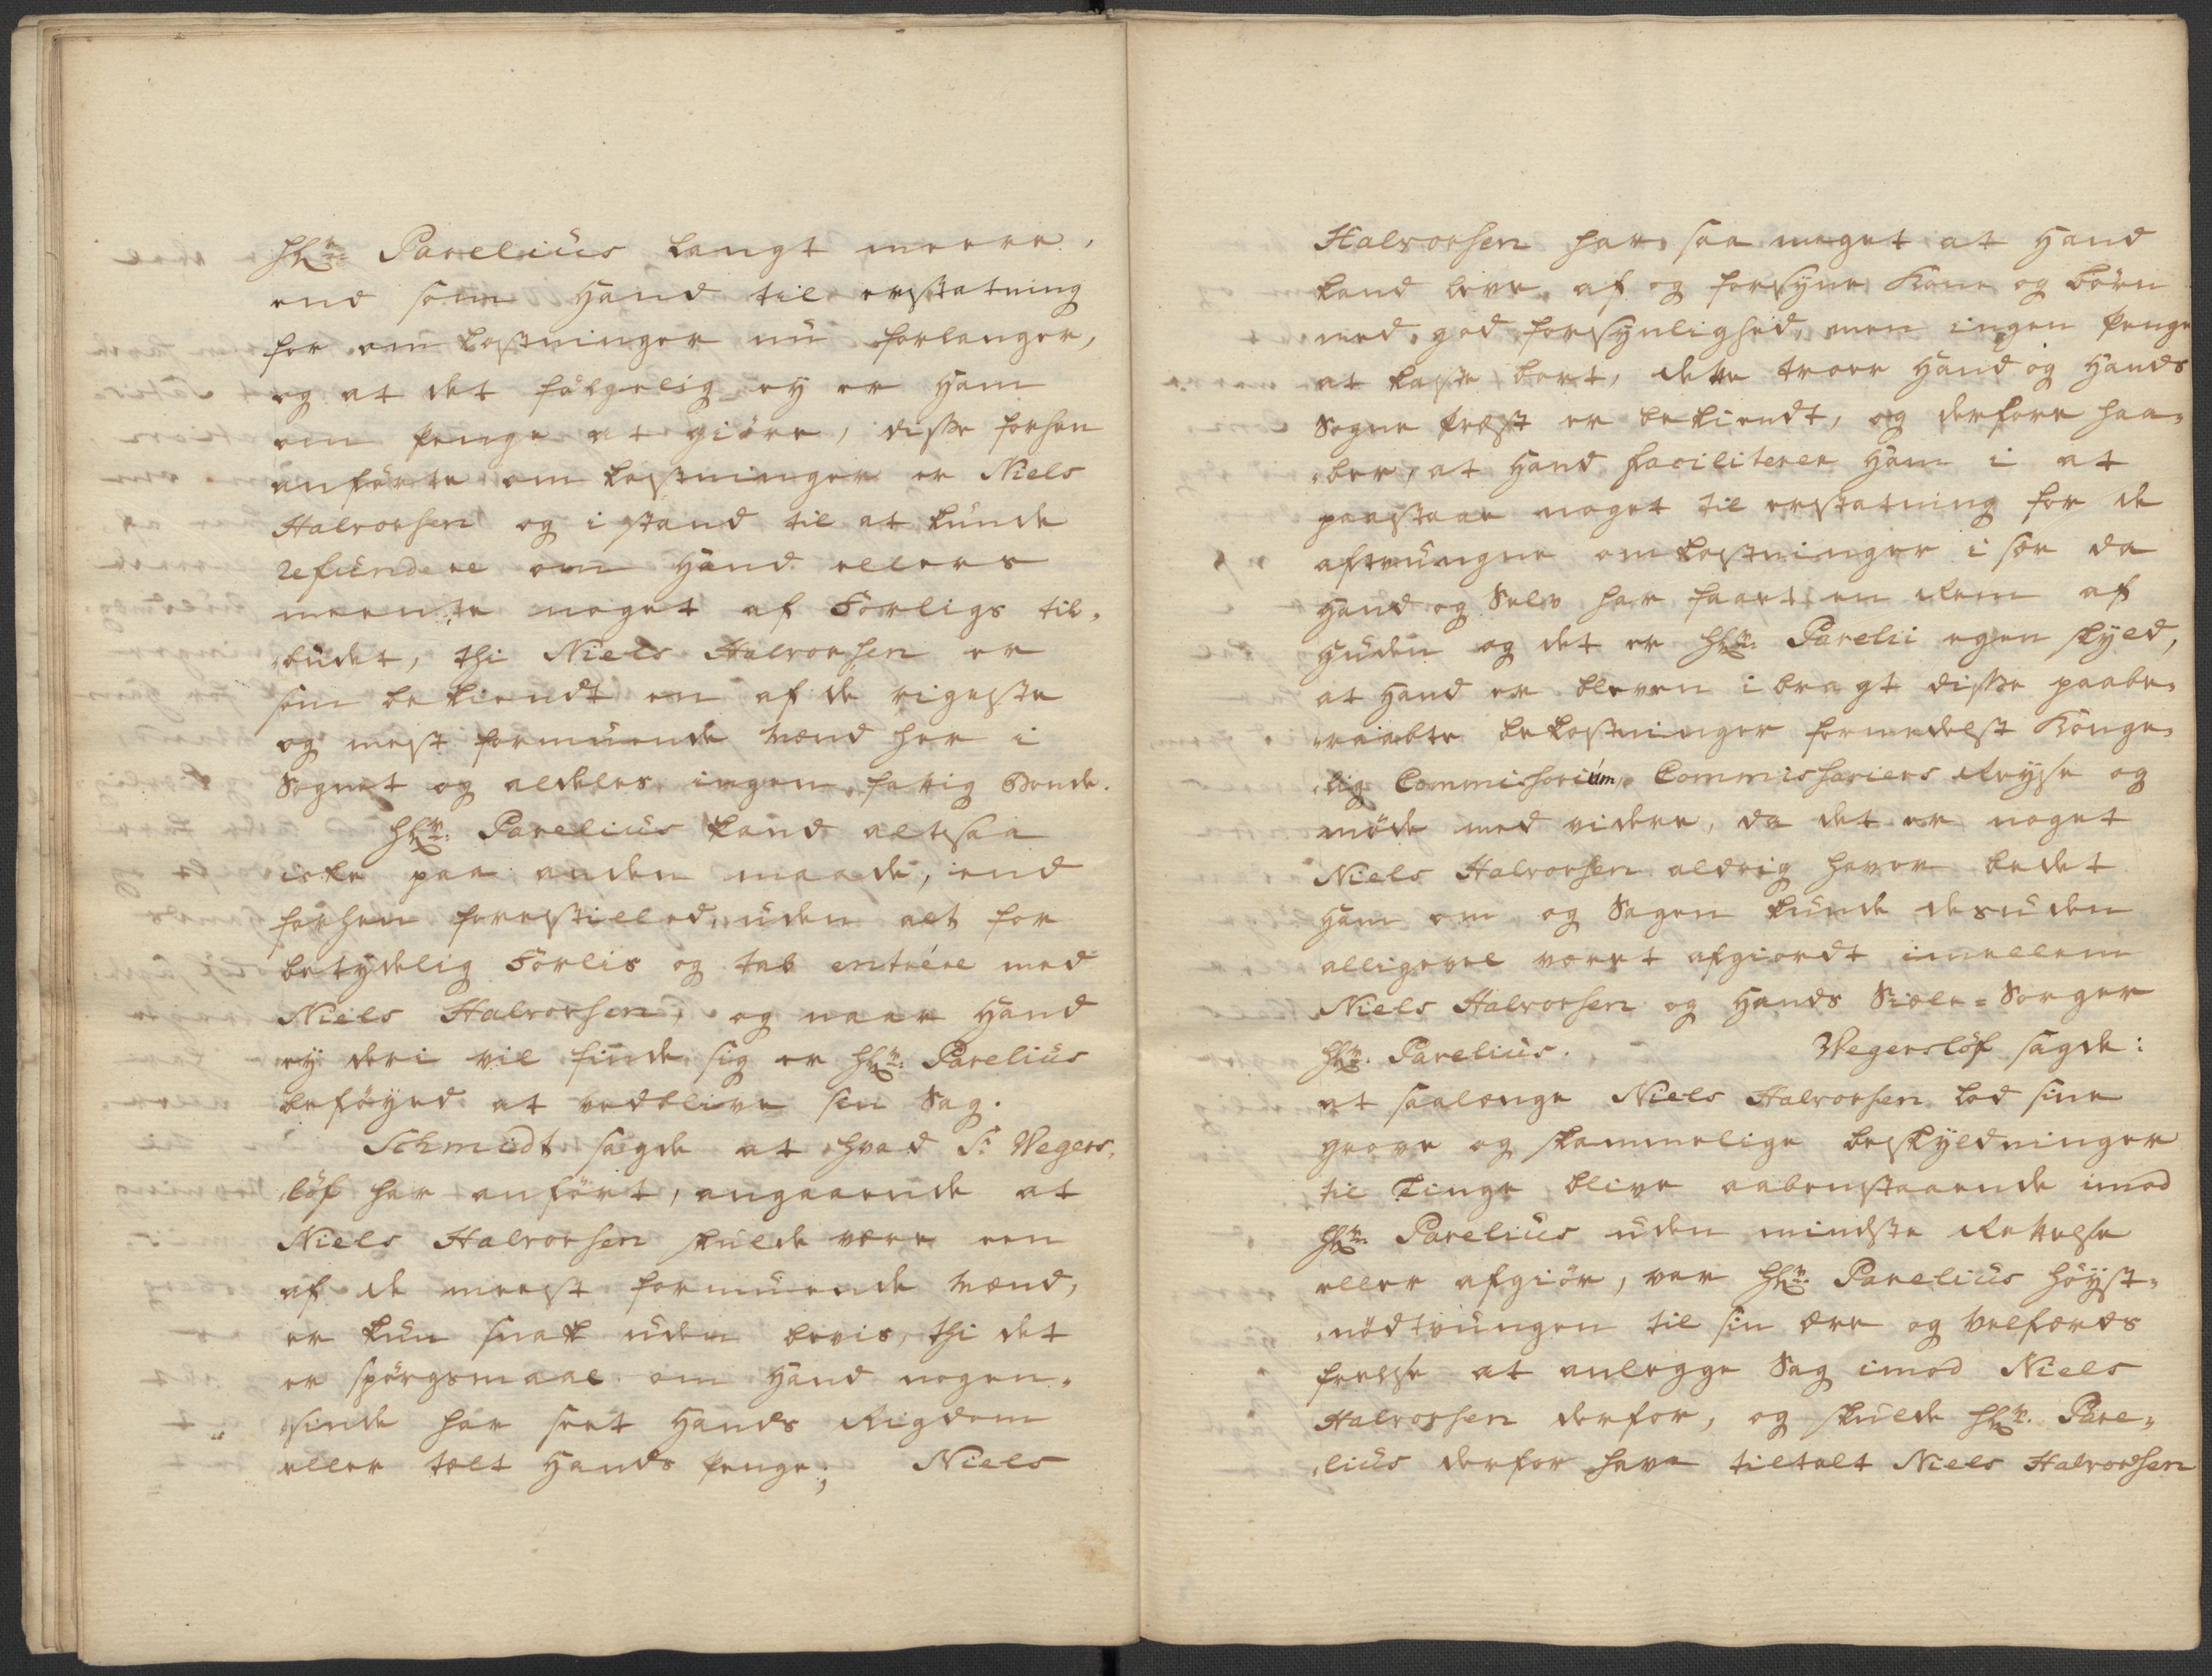 Hr: Parelius langt meere,
end som Hand til erstatning
for omkostninger nu forlanger,
og at det følgelig ey er Ham
om penge at giöre, disse forhen
anförte omkostninger er Niels
Halvorsen og i stand til at kunde
refundere om Hand ellers
meente noget af Forligs til-
budet, thi Niels Halvorsen er
som bekiendt en af de rigeste
og mest formuende Mænd her i
Sognet og aldeles ingen fattig Bonde.
Hr: Parelius kand altsaa
icke paa anden maade, end
forhen forestilled, uden alt for
betydelig Forlis og tab entrére med
Niels Halvorsen, og naar Hand
ey deri vil finde sig er Hr: Parelius
beföyed at vedblive sin Sag.
Schmidt sagde at hvad Sr Wegers-
löf har anfört, angaaende at
Niels Halvorsen skulde være een
af de meest formuende Mænd,
er kun snak uden bevis, thi det
er spörgsmaal om Hand nogen-
sinde har seet Hands Rigdom
eller talt Hands penge; Niels
Halvorsen har saa meget at Hand
kand leve af og forsyne Kone og börn
med god forsynlighed, men ingen penge
at kaste bort, dette troer Hand og Hands
Sogne Præst er bekiendt, og derfore haa-
ber, at Hand faciliterer Ham i at
paastaae noget til erstatning for de
aftvungne omkostninger i sær da
Hand og Selv har faaet en Rem af
Huden og det er Hr: Parelii egen skyld,
at Hand er bleven ibragt disse paabe-
raabte bekostninger formedelst Konge-
lig Commissorium, Commissariers Reyse og
möde med videre, da det er noget
Niels Halvorsen aldrig haver bedet
Ham om og Sagen kunde desuden
alligevel været afgiordt imellem
Niels Halvorsen og Hands Siæle-Sorger
Hr: Parelius. Wegerslöf sagde:
at saalænge Niels Halvorsen lod sine
grove og skammelige beskyldninger
til Tinge blive aabenstaaende imod
Hr: Parelius uden mindste Rettelse
eller afgiör, var Hr: Parelius höyst-
nödtvungen til sin ære og Velfærds
frelse at anlegge Sag imod Niels
Halvorsen derfor, og skulde Hr: Pare-
lius derfor have tiltalt Niels Halvorsen